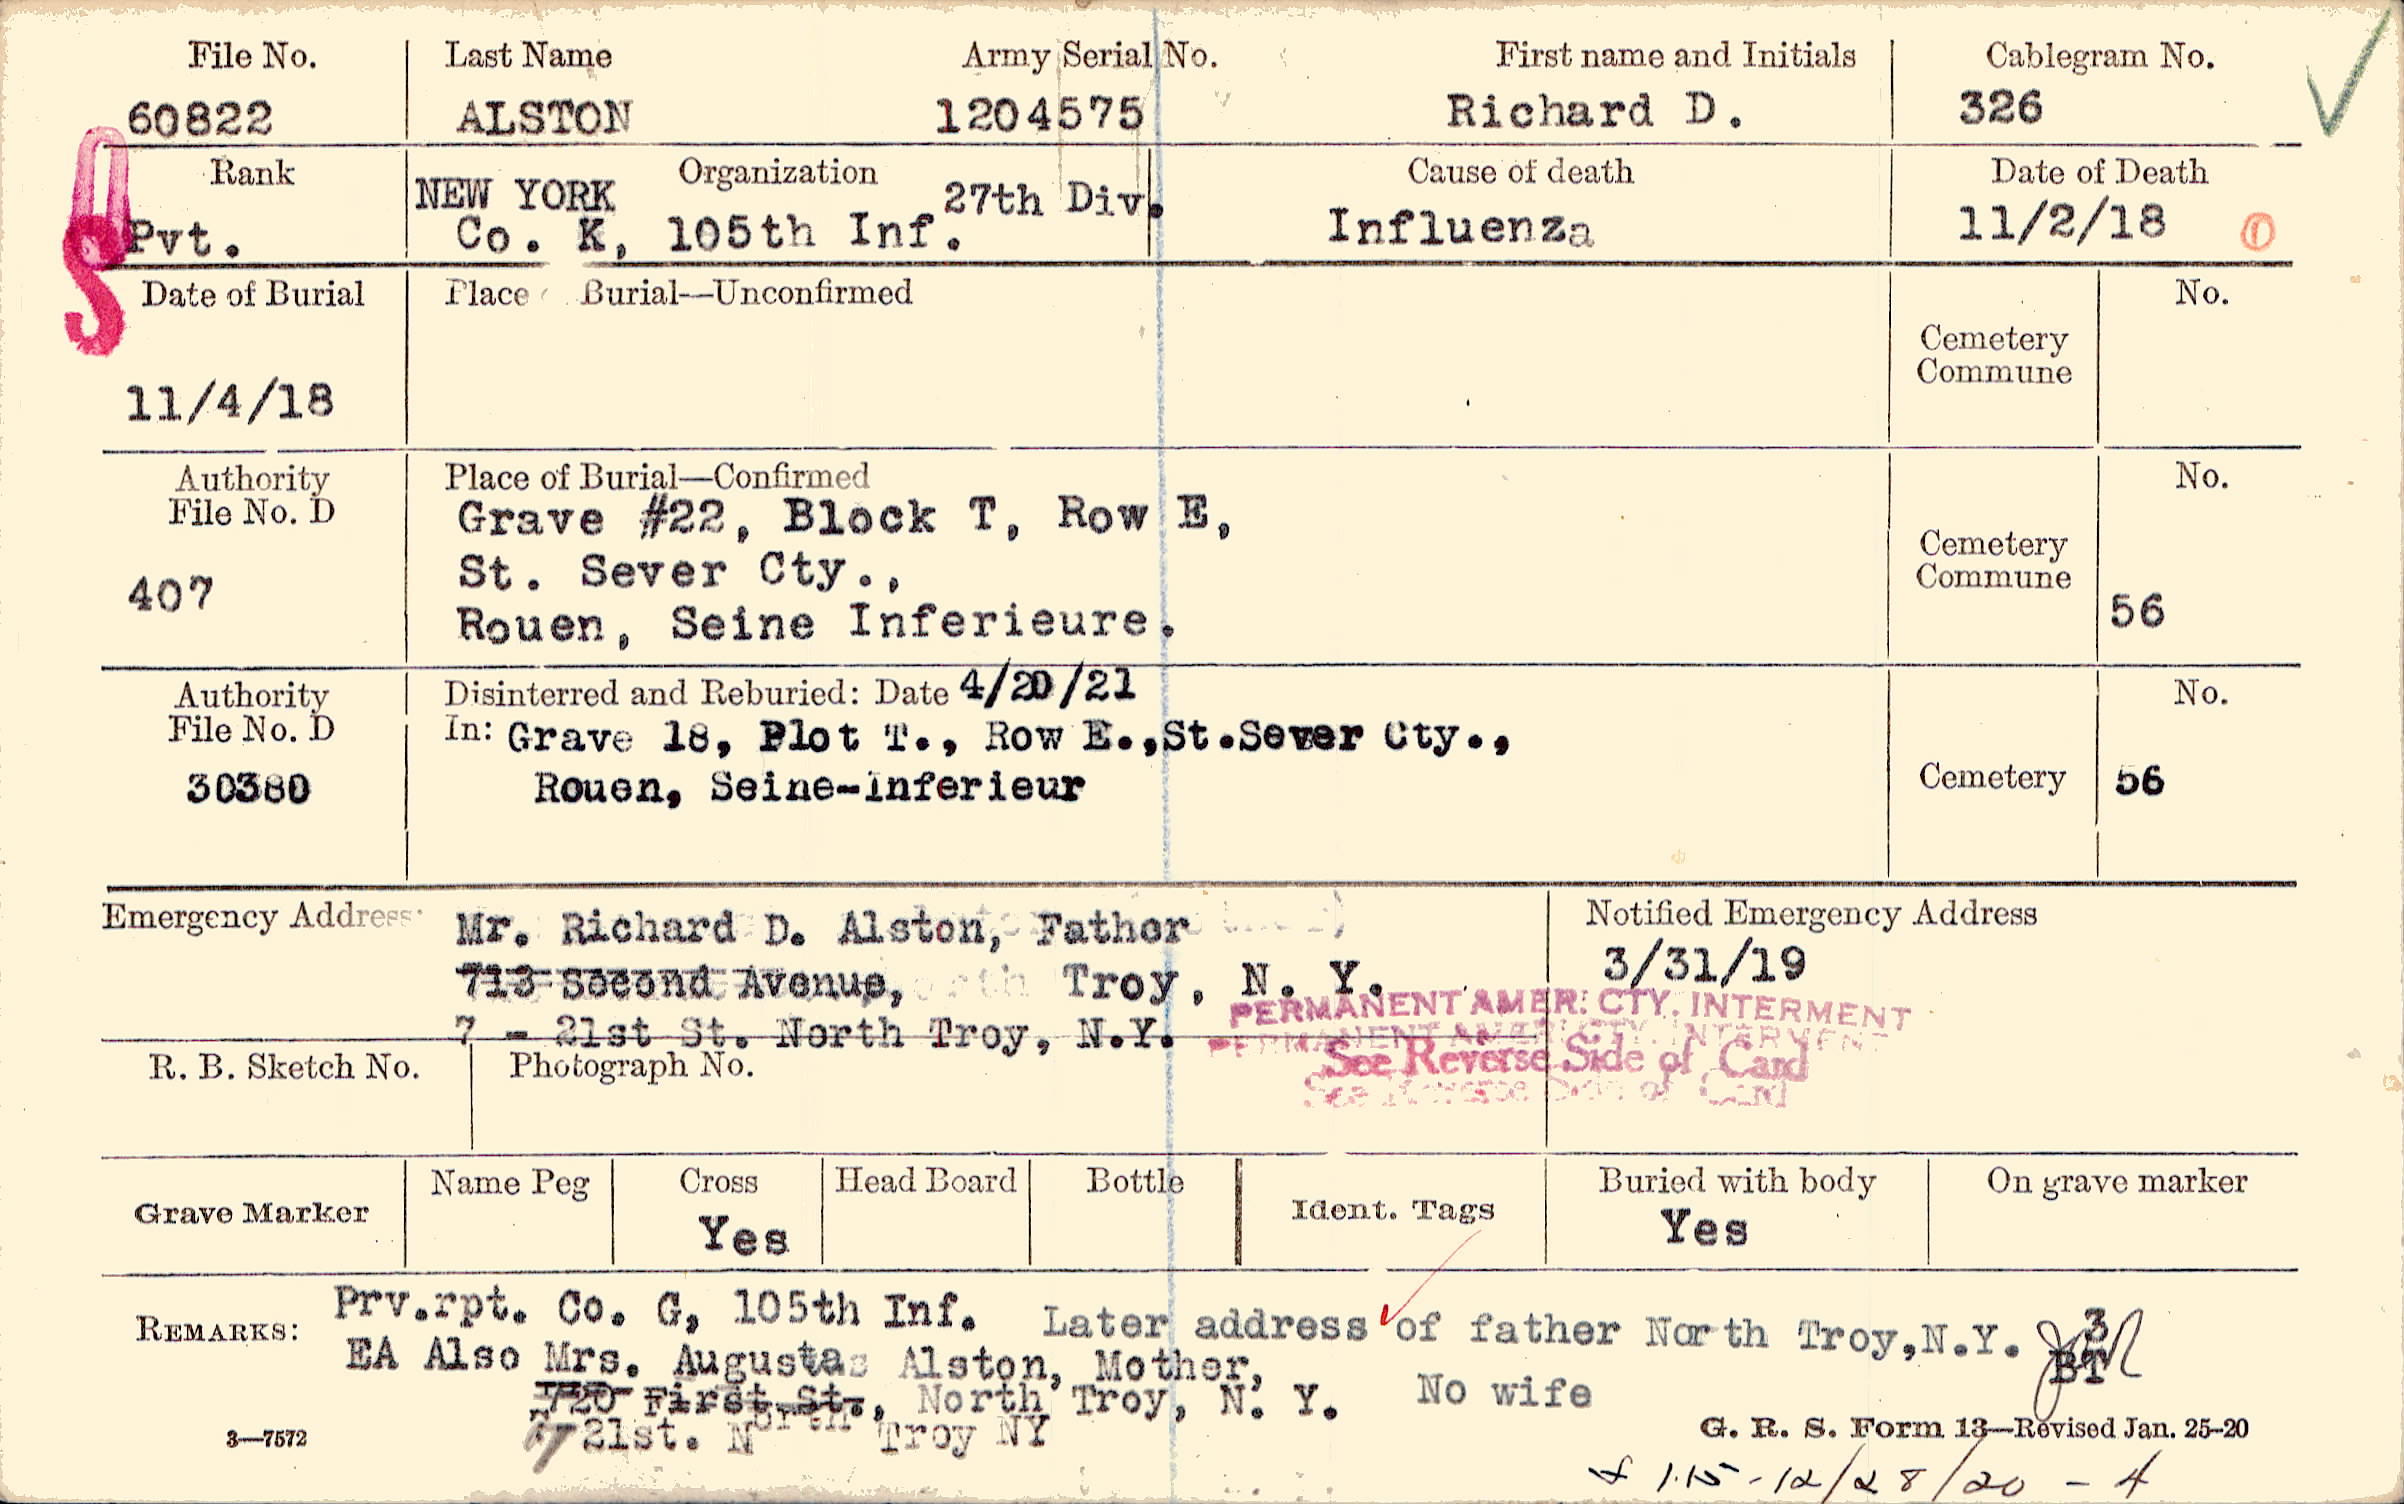 File No. Last Name Army Serial No. First name and Initials Cablegram No.
60822 ALSTON 1204575 Richard D. 326
Rank Organization Cause of death Date of Death
NEW YORK 27th Div.
Pvt. Co. K, 105th Inf. Influenza 11/2/18
Date of Burial Place Burial—Unconfirmed No.
Cemetery
Commune
11/4/18
Authority Place of Burial—Confirmed No.
File No. D Grave #22, Block T, Row E,
St. Sever Cty., Cemetery
407 Commune
Rouen, Seine Inferieure. 56
Authority Disinterred and Reburied: Date 4/20/21 No.
File No. D In: Grave 18, Plot T., Row E.,St.Sever Cty.,
30380 Rouen, Seine-Inferieur Cemetery 56
Emergency Address: Mr. Richard D. Alston, Father Notified Emergency Address
713 Second Avenue, Troy, N. Y. 3/31/19
7 - 21st St. North Troy, N.Y. PERMANENT AMER. CTY. INTERMENT
PERMANENT AMER. CTY. INTERMENT
R. B. Sketch No. Photograph No. See Reverse Side of Card
See Reverse Side of Card
Grave Marker Name Peg Cross Head Board Bottle Ident. Tags Buried with body On grave marker
Yes Yes
REMARKS: Prv.rpt. Co. G, 105th Inf. Later address of father North Troy,N.Y. 3
EA Also Mrs. Augusta Alston, Mother, BT
720 First St., North Troy, N. Y. No wife
7 21st. North Troy NY
3—7572 G. R. S. Form 13—Revised Jan. 25-20
1.15-12/28/20 - 4